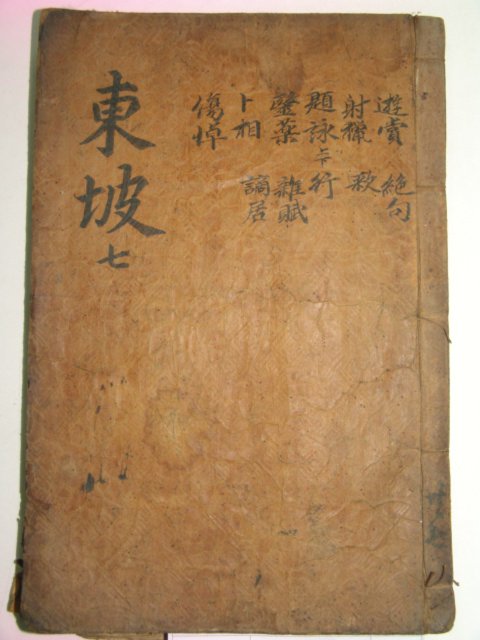 遊賞 絶句
射獵 歌
題詠 上下 行
醫藥 雜賦
卜相 謫居
傷悼
東坡 七